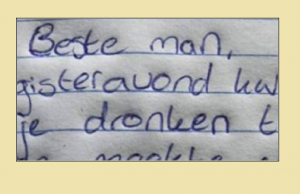 Beste man,
gisteravond kw
je dronken t